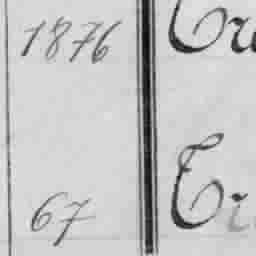 1876 Tru
67 Tr